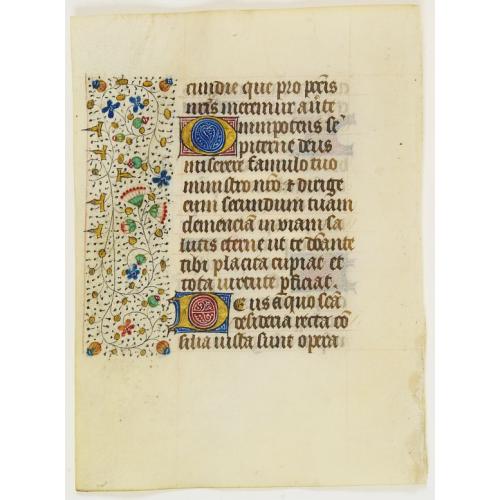 cundie que pro pctis
nris meremur aute
Omnipotens se
piterne deus
miserere famulo tuo
ministro nro & dirige
eum secundum tuam
clemenciam in viam sa
lutis eterne ut te donante
tibi placita cupiat et
tota virtute perficiat.
Deus a quo sca
desideria recta co
silia iusta sunt opera